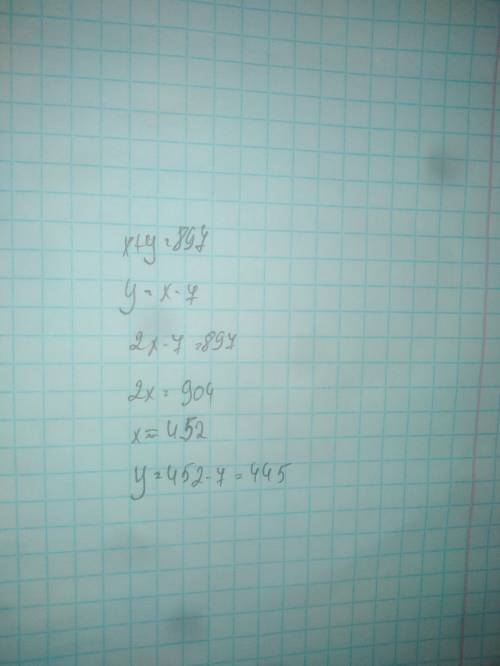 x+y=897
y=x-7
2x-7=897
2x=904
x=452
y=452-7=445